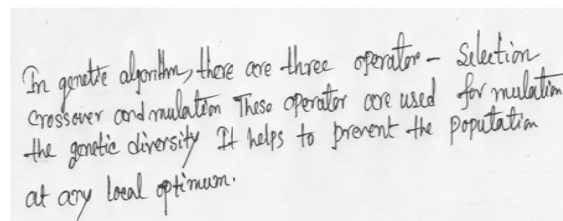 In genetic algorithm, there are three operator - Selection
crossover and mulation These operator are used for mulation
the genetic diversity It helps to prevent the poputation
at any local optimum.